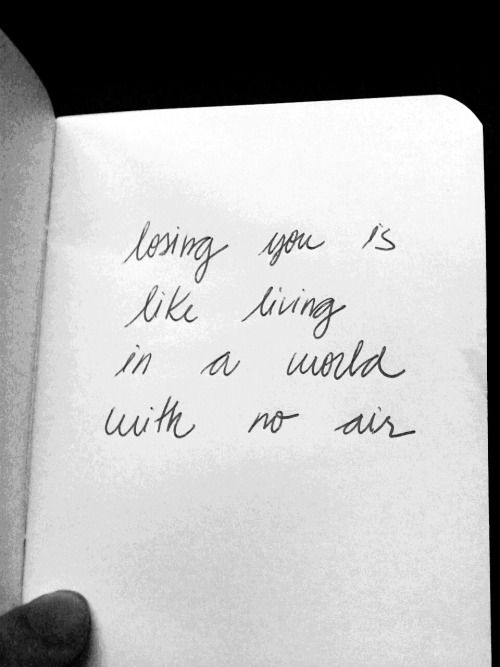 losing you is
like living
in a world
with no air